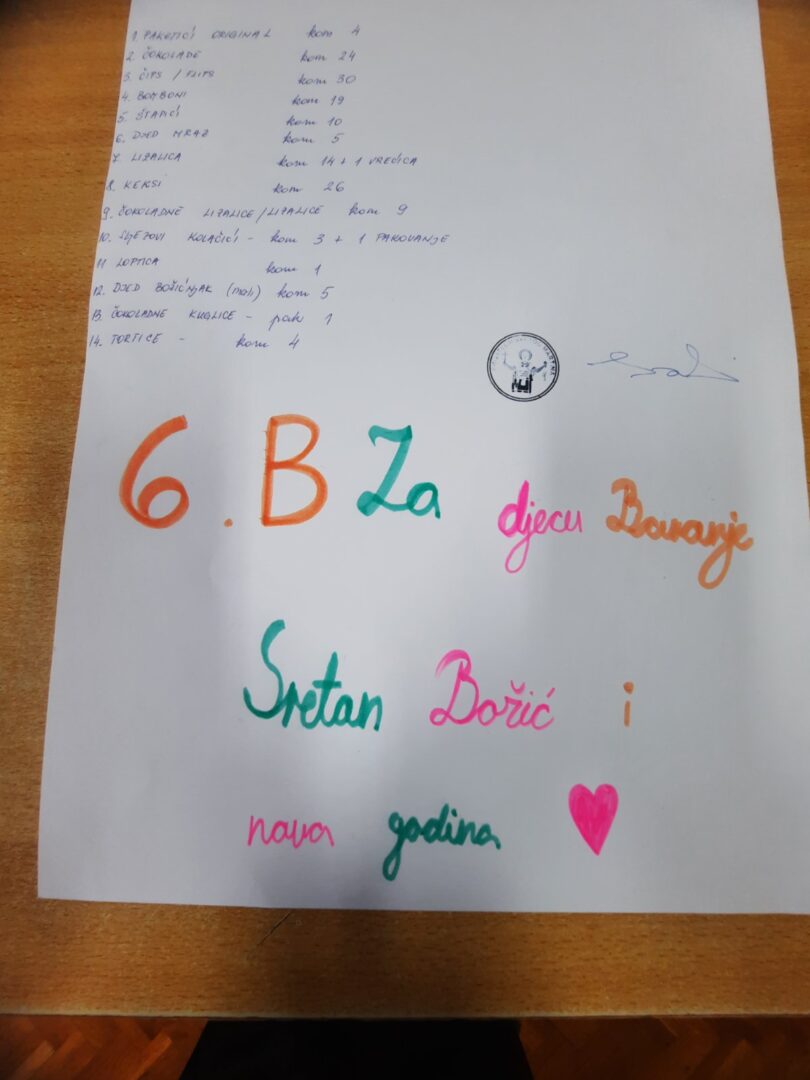 1. PAKETIĆI ORIGINAL kom 4
2. ČOKOLADE kom 24
3. ČIPS / FLIPS kom 30
4. BOMBONI kom 19
5. ŠTAPIĆI kom 10
6. DJED MRAZ kom 5
7. LIZALICA kom 14 + 1 VREĆICA
8. KEKSI kom 26
9. ČOKOLADNE LIZALICE/LIZALICE kom 9
10. SLJEZOVI KOLAČIĆI - kom 3 + 1 PAKOVANJE
11 LOPTICA kom 1
12. DJED BOŽIĆNJAK (mali) kom 5
13. ČOKOLADNE KUGLICE - pak 1
14. TORTICE - kom 4
6.B Za djecu Baranje
Sretan Božić i
nova godina